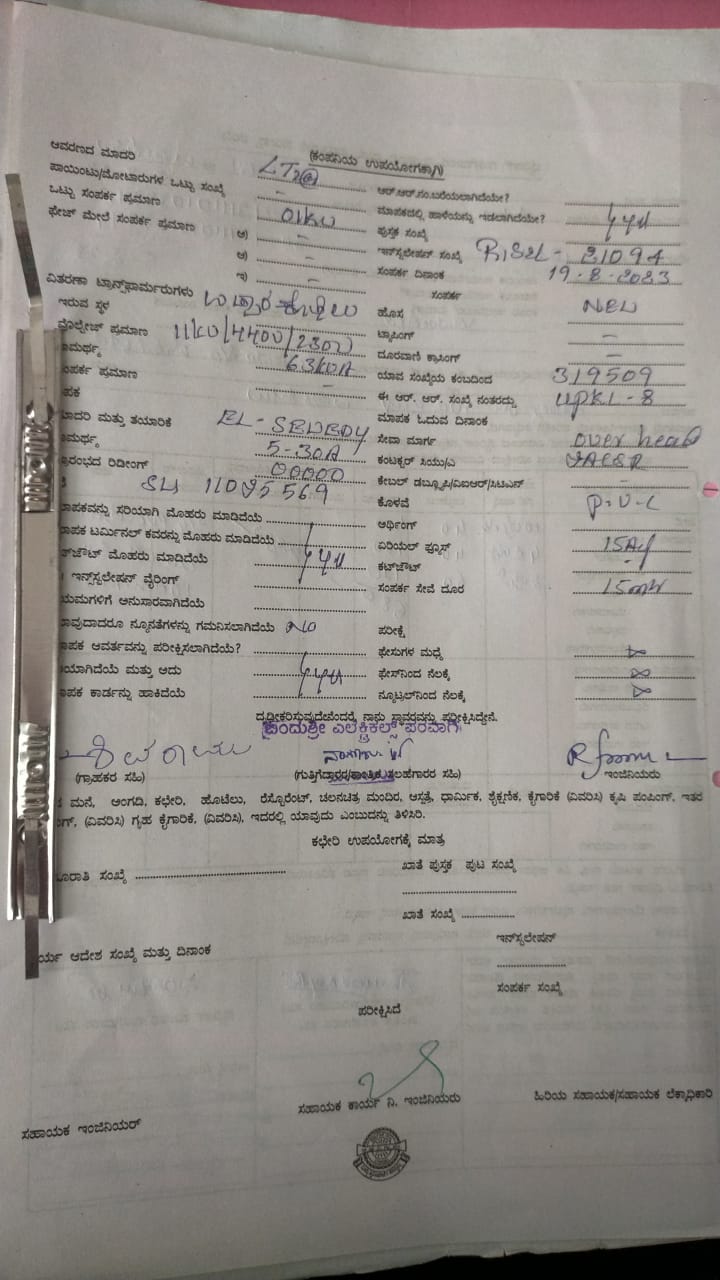 (ಕಂಪನಿಯ ಉಪಯೋಗಕ್ಕಾಗಿ)
ಆವರಣದ ಮಾದರಿ LT2(a) ಆರ್.ಆರ್.ನಂ.ಬರೆಯಲಾಗಿದೆಯೇ?
ಪಾಯಿಂಟು/ಮೋಟಾರುಗಳ ಒಟ್ಟು ಸಂಖ್ಯೆ – ಮಾಪಕದಲ್ಲಿ ಹಾಳೆಯನ್ನು ಇಡಲಾಗಿದೆಯೇ?
ಒಟ್ಟು ಸಂಪರ್ಕ ಪ್ರಮಾಣ 01KW ಪುಸ್ತಕ ಸಂಖ್ಯೆ
ಫೇಜ್ ಮೇಲೆ ಸಂಪರ್ಕ ಪ್ರಮಾಣ ಅ) – ಇನ್‌ಸ್ಟಲೇಷನ್ ಸಂಖ್ಯೆ 31094
ಆ) – ಸಂಪರ್ಕ ದಿನಾಂಕ 19-8-2023
ಇ) – ಸಂಪರ್ಕ
ವಿತರಣಾ ಟ್ರಾನ್ಸ್‌ಫಾರ್ಮರುಗಳು
ಇರುವ ಸ್ಥಳ ಹೊಸ NEW
ವೋಲ್ಟೇಜ್ ಪ್ರಮಾಣ 11KV/440V/230V ಟ್ಯಾಪಿಂಗ್ –
ಾಮರ್ಥ್ಯ 63KVA ದೂರವಾಣಿ ಕ್ರಾಸಿಂಗ್ –
ಂಪರ್ಕ ಪ್ರಮಾಣ – ಯಾವ ಸಂಖ್ಯೆಯ ಕಂಬದಿಂದ 319509
ಾಪಕ ಈ ಆರ್. ಆರ್. ಸಂಖ್ಯೆ ನಂತರದ್ದು UPKL-8
ಾದರಿ ಮತ್ತು ತಯಾರಿಕೆ ಮಾಪಕ ಓದುವ ದಿನಾಂಕ
ಾಮರ್ಥ್ಯ 5-30A ಸೇವಾ ಮಾರ್ಗ over head
ಾರಂಭದ ರಿಡೀಂಗ್ 00000 ಕಂಟಕ್ಟರ್ ಸಿಯು/ಎ
ಕೇಬಲ್ ಡಬ್ಲ್ಯೂಪಿ/ವಿಐಆರ್/ಸಿಟಿಎನ್ –
ಕೊಳವೆ P.V.C
ಾಪಕವನ್ನು ಸರಿಯಾಗಿ ಮೊಹರು ಮಾಡಿದೆಯೆ ಅರ್ಥಿಂಗ್
ಾಪಕ ಟರ್ಮಿನಲ್ ಕವರನ್ನು ಮೊಹರು ಮಾಡಿದೆಯೆ ಏರಿಯಲ್ ಫ್ಯೂಸ್
ಟ್‌ಔಟ್ ಮೊಹರು ಮಾಡಿದೆಯೆ ಕಟ್‌ಔಟ್ -
ಇನ್‌ಸ್ಟಲೇಷನ್ ವೈರಿಂಗ್ ಸಂಪರ್ಕ ಸೇವೆ ದೂರ
ಯಮಗಳಿಗೆ ಅನುಸಾರವಾಗಿದೆಯೆ
ಾವುದಾದರೂ ನ್ಯೂನತೆಗಳನ್ನು ಗಮನಿಸಲಾಗಿದೆಯೆ NO ಪರೀಕ್ಷೆ
ಾಪಕ ಆವರ್ತವನ್ನು ಪರೀಕ್ಷಿಸಲಾಗಿದೆಯೆ? ಫೇಸುಗಳ ಮಧ್ಯೆ
ಯಾಗಿದೆಯೆ ಮತ್ತು ಅದು ಫೇಸ್‌ನಿಂದ ನೆಲಕ್ಕೆ
ಾಪಕ ಕಾರ್ಡನ್ನು ಹಾಕಿದೆಯೆ ನ್ಯೂಟ್ರಲ್‌ನಿಂದ ನೆಲಕ್ಕೆ
ದೃಢೀಕರಿಸುವುದೇನೆಂದರೆ, ನಾನು ಸ್ಥಾವರವನ್ನು ಪರೀಕ್ಷಿಸಿದ್ದೇನೆ.
ಎಲೆಕ್ಟ್ರಿಕಲ್ಸ್ ಪರವಾಗಿ
(ಗ್ರಾಹಕರ ಸಹಿ) (ಗುತ್ತಿಗೆದಾರರ/ತಾಂತ್ರಿಕ ಸಲಹೆಗಾರರ ಸಹಿ) ಇಂಜಿನಿಯರು
ಮನೆ, ಅಂಗಡಿ, ಕಛೇರಿ, ಹೊಟೆಲು, ರೆಸ್ಟೊರೆಂಟ್, ಚಲನಚಿತ್ರ ಮಂದಿರ, ಆಸ್ಪತ್ರೆ, ಧಾರ್ಮಿಕ, ಶೈಕ್ಷಣಿಕ, ಕೈಗಾರಿಕೆ (ವಿವರಿಸಿ) ಕೃಷಿ ಪಂಪಿಂಗ್, ಇತರ
ಂಗ್, (ವಿವರಿಸಿ) ಗೃಹ ಕೈಗಾರಿಕೆ, (ವಿವರಿಸಿ), ಇದರಲ್ಲಿ ಯಾವುದು ಎಂಬುದನ್ನು ತಿಳಿಸಿರಿ.
ಕಛೇರಿ ಉಪಯೋಗಕ್ಕೆ ಮಾತ್ರ
ಾತಿ ಸಂಖ್ಯೆ ಖಾತೆ ಪುಸ್ತಕ ಪುಟ ಸಂಖ್ಯೆ
ಖಾತೆ ಸಂಖ್ಯೆ
ರ್ಯ ಆದೇಶ ಸಂಖ್ಯೆ ಮತ್ತು ದಿನಾಂಕ ಇನ್‌ಸ್ಟಲೇಷನ್
ಸಂಪರ್ಕ ಸಂಖ್ಯೆ
ಪರೀಕ್ಷಿಸಿದೆ
ಸಹಾಯಕ ಇಂಜಿನಿಯರ್ ಸಹಾಯಕ ಕಾರ್ಯ ನಿ. ಇಂಜಿನಿಯರು ಹಿರಿಯ ಸಹಾಯಕ/ಸಹಾಯಕ ಲೆಕ್ಕಾಧಿಕಾರಿ